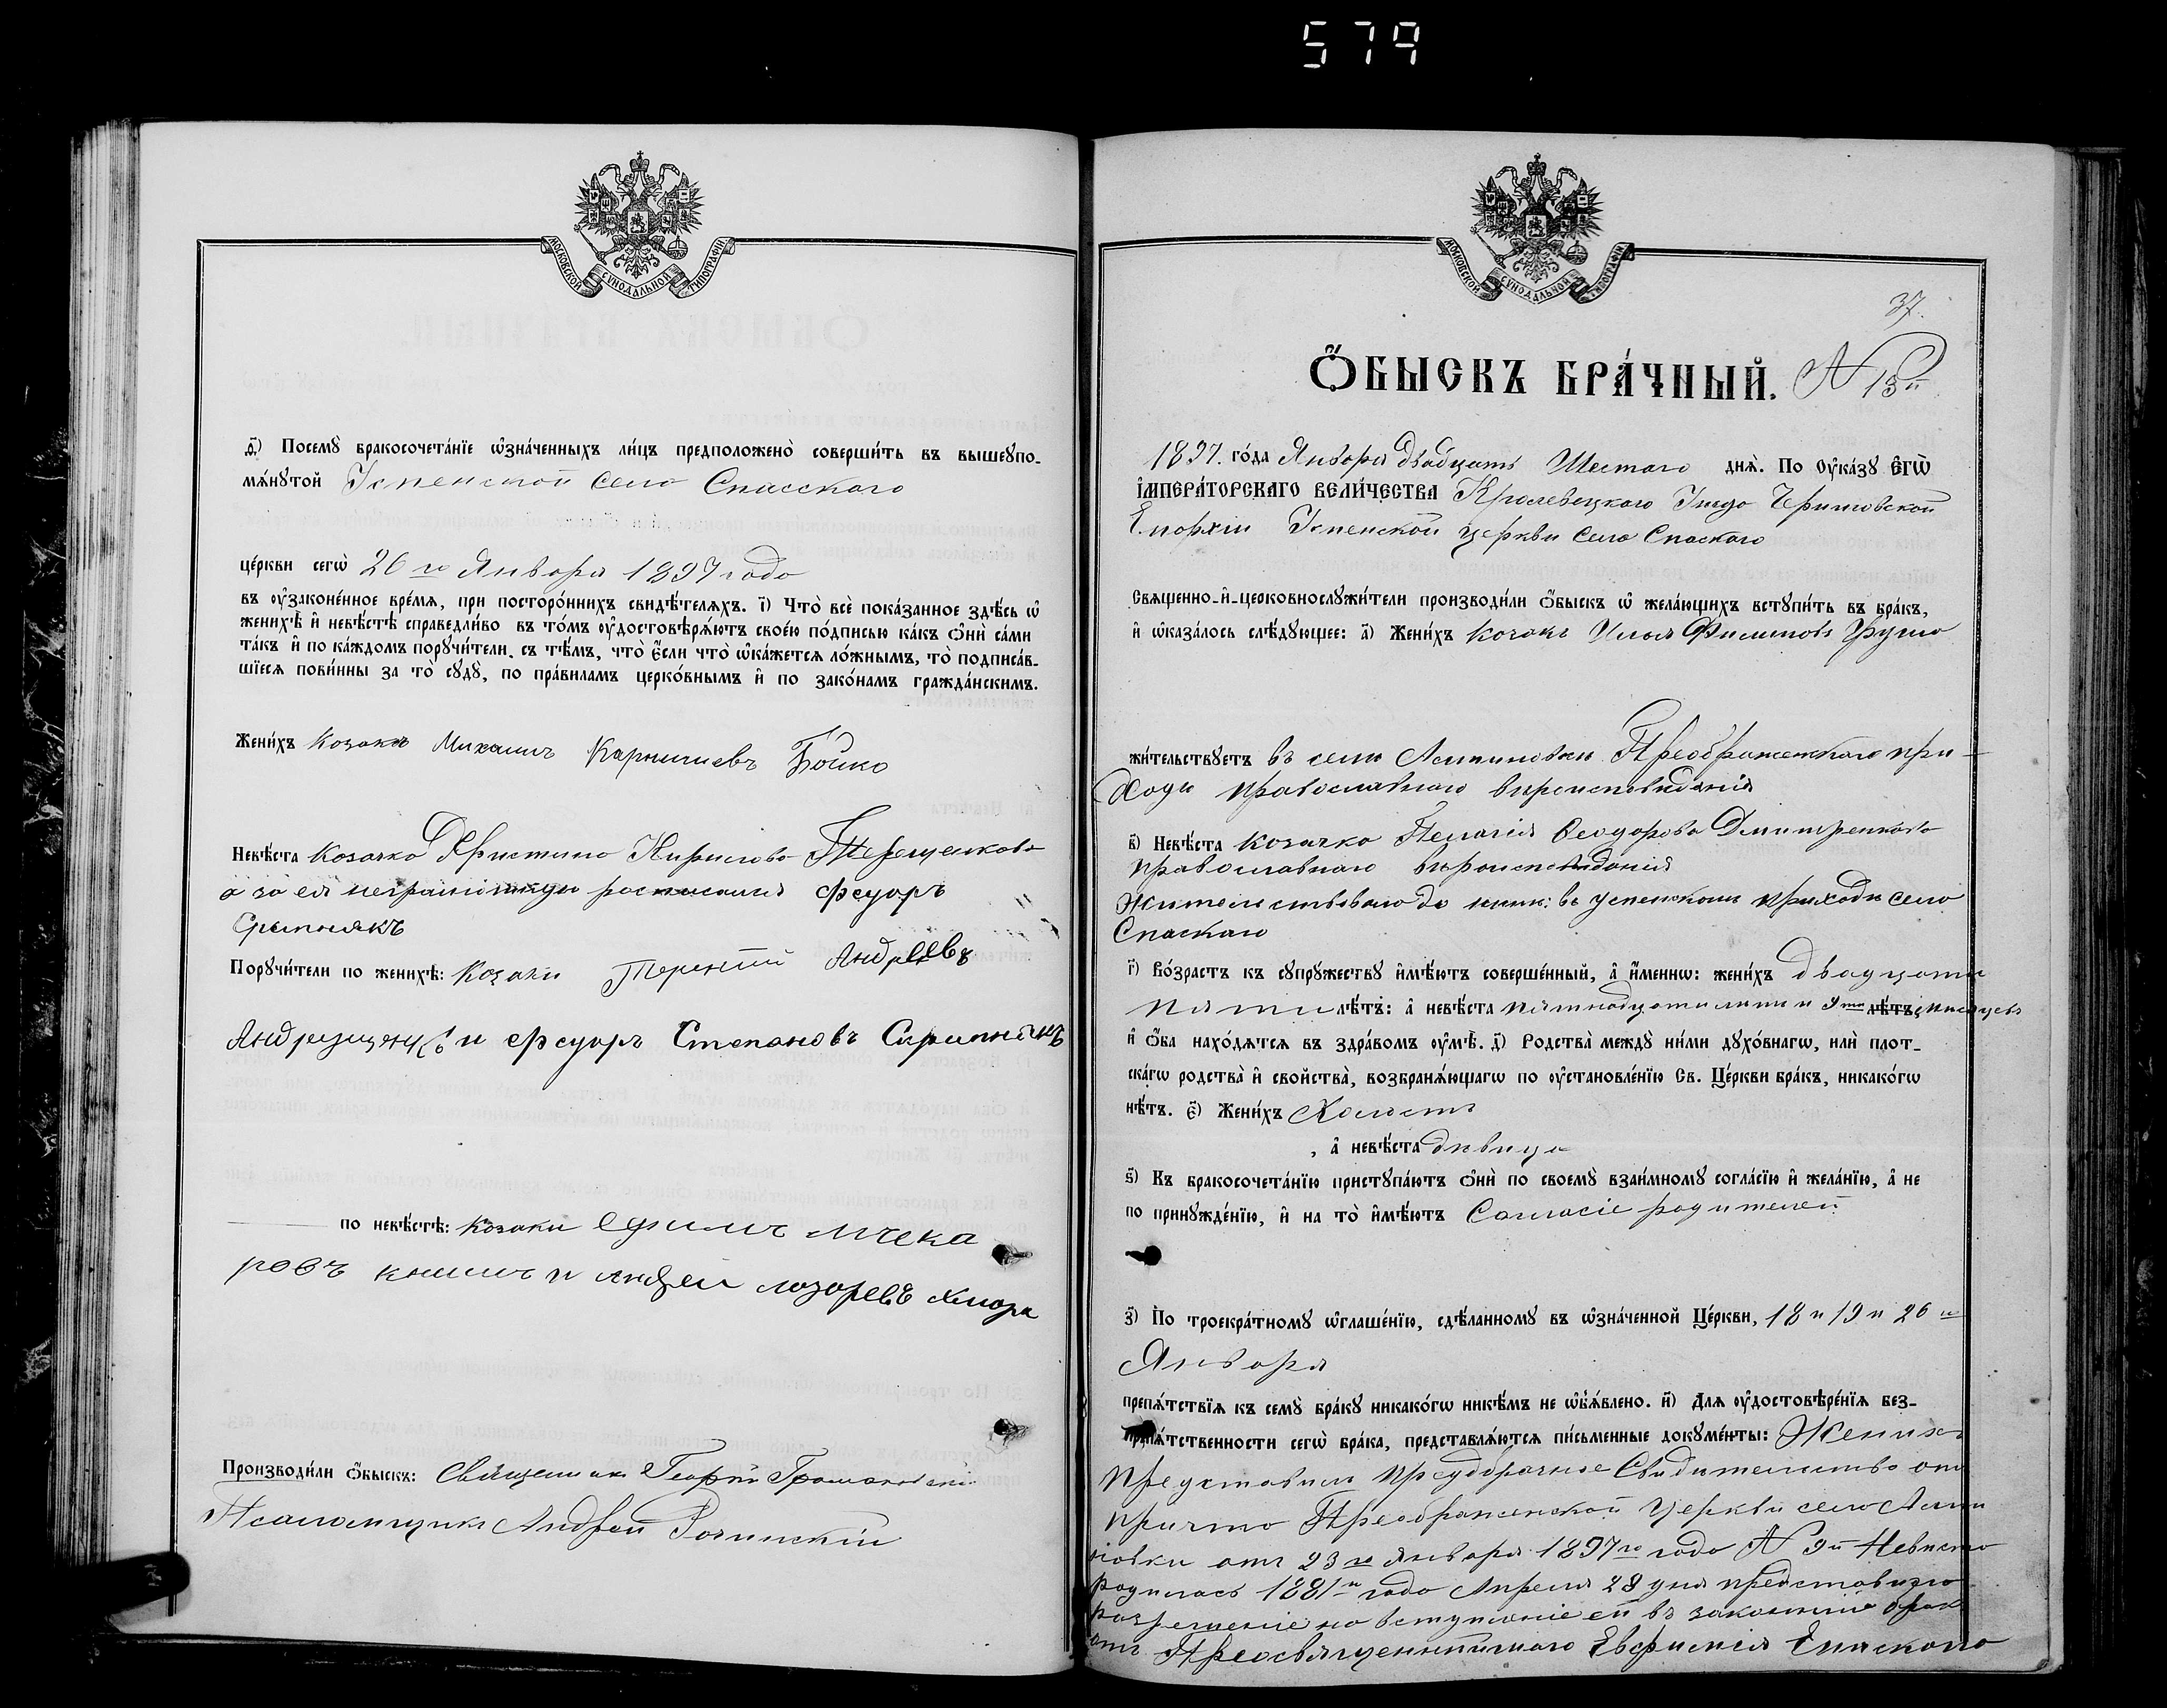 579
МОСКОВСКОЙ СѴНОДАЛЬНОЙ ТИПОГРАФІИ
д҃і) Посемꙋ̀ бракосочета́нїе ѡ҆зна́ченныхъ ли́цъ предположено̀ соверши́ть въ вышеꙋпо-
мѧ́нꙋтой Успенской села Спасского
це́ркви сегѡ̀ 26го Января 1897 года
въ ᲂу҆зоконе́нное вре́мѧ, при посторо́ннихъ свидѣ́телѧхъ. і҃) Что̀ всѐ пока́занное здѣ́сь ѡ҆
женихѣ̀ и҆ невѣ́стѣ справедли́во въ то́мъ ᲂу҆достовѣрѧ́ютъ свое́ю по́дписью ка́къ ѻ҆нѝ са́ми
та́къ и҆ по ка́ждомъ порꙋчи́тели, съ тѣ́мъ, что̀ є҆́сли что̀ ѡ҆ка́жетсѧ ло́жнымъ, то̀ подписа́в-
шїесѧ пови́нны за то̀ сꙋдꙋ̀, по пра́виламъ церко́внымъ и҆ по зако́намъ гражда́нскимъ.
Жени́хъ Козакъ Михаилъ Карнилиевъ Бойко
Невѣ́ста Козачка Христина Кирилова Терещенкова
а за ея неграмотную расписался Феуоръ
Срипнякъ
Порꙋчи́тели по женихѣ̀: Козаки Терентій Андреевъ
и Феуоръ Степановъ Скрипнякъ
по невѣ́стѣ: Козаки Ефимъ
ровъ книшъ и Андреи лозоревъ хмара
Производи́ли ѻ҆́быскъ: Священникъ Георгій
Псаломщикъ Андрей
МОСКОВСКОЙ СѴНОДАЛЬНОЙ ТИПОГРАФІИ
37.
Ѻ҆́БЫСКЪ БРА́ЧНЫЙ. N 13й
1897. го́да Января двадцать Шестаго днѧ̀. По Оу҆ка́зꙋ Є҆ГѠ̀
І҆МПЕРА́ТОРСКАГО ВЕЛИ́ЧЕСТВА Кролевецкого Уезда Черниговской
Епархіи Успенской церкви села Спаского
Свѧще́нно-и҆-церковнослꙋжи́тели производи́ли ѻ҆́быскъ ѡ҆ жела́ющихъ встꙋпи́ть въ бра́къ,
и҆ ѡ҆каза́лось слѣ́дꙋющее: а҃) Жени́хъ козакъ Илья Филиповъ
жи́тельствꙋетъ въ селѣ Алтиновки Преображенскаго при-
ходу православнаго вѣроисповѣданія
в҃) Невѣ́ста козачка Пелагія Ѳеодорова Дмитренкова
православнаго вѣроисповѣданія
Жительствовала до нынѣ: въ Успенскомъ приходѣ села
Спаскаго
г҃) Во́зрастъ къ сꙋпрꙋ́жествꙋ и҆мѣ́ютъ соверше́нный, а҆ и҆́меннѡ: жени́хъ двадцати
пяти лѣ́тъ: а҆ невѣ́ста пятнадцати лѣтъ и 9ти лѣ́тъ; мисяцевъ
и҆ ѻ҆́ба нахо́дѧтсѧ въ здра́вомъ ᲂу҆мѣ̀. д҃) Родства̀ междꙋ ни́ми дꙋхо́внагѡ, илѝ плот-
ска́гѡ родства̀ и҆ свойства̀, возбранѧ́ющагѡ по ᲂу҆становле́нїю Св. Це́ркви бра́къ, никако́гѡ
нѣ́тъ. є҃) Жени́хъ Холостъ
, а҆ невѣ́ста дѣвица
ѕ҃) Къ бракосочета́нїю пристꙋпа́ютъ ѻ҆нѝ по своемꙋ̀ взаи́мномꙋ согла́сїю и҆ жела́нїю, а҆ не
по принꙋжде́нїю, и҆ на то̀ и҆мѣ́ютъ Согласіе родителей
з҃) По троекра́тномꙋ ѡ҆глаше́нїю, сдѣ́ланномꙋ въ ѡ҆зна́ченной Це́ркви, 18 и 19 и 26го
Января
препѧ́тствїѧ къ семꙋ̀ бра́кꙋ никако́гѡ никѣ́мъ не ѡ҆б̾ѧ́влено. и҃) Длѧ ᲂу҆достовѣре́нїѧ без-
препѧ́тственности сегѡ̀ бра́ка, представлѧ́ютсѧ пи́сьменные докꙋме́нты: Женихъ
представилъ предбрачное Свидительство отъ
причта Преображенской церкви села Алти
новки отъ 23го Января 1897го года N 9й Невиста
родилась 1881го года Апреля 28 дня представила
разрешеніе на вступленіе ей въ законный бракъ
отъ Преосвященнийшаго Евфимія Епископа